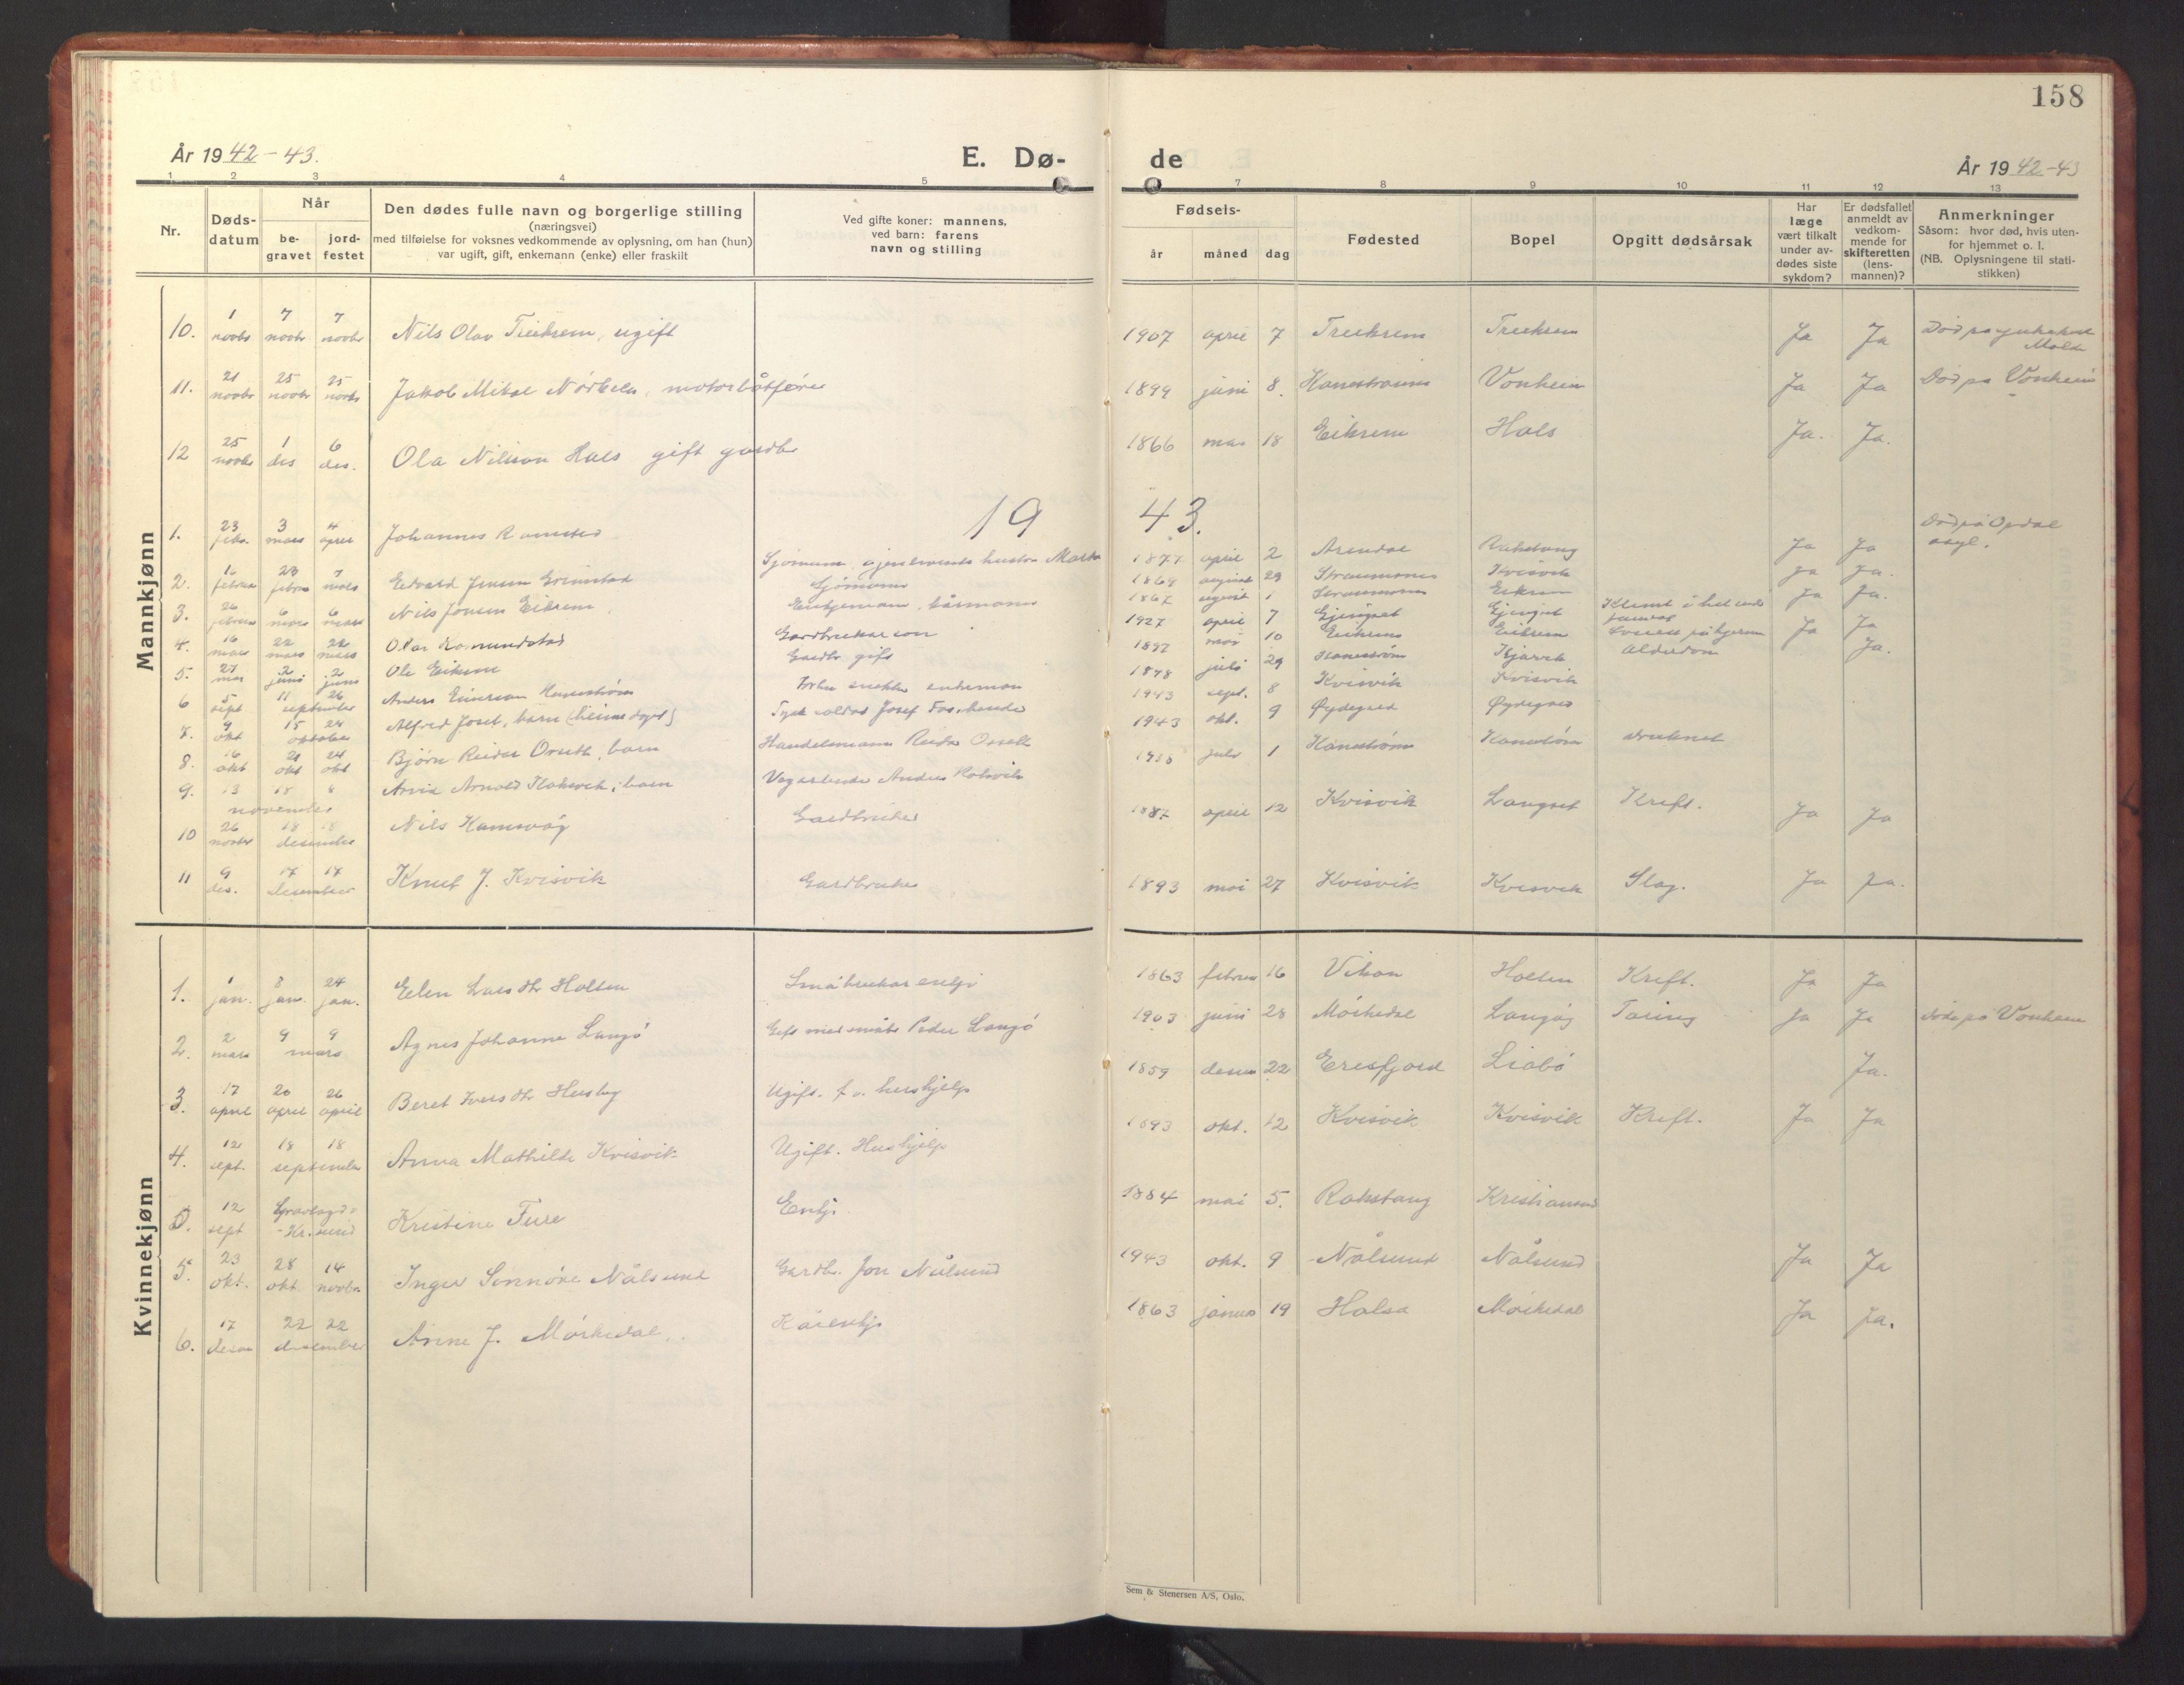 158
År 1942-43.
E. Dø-
de
År 1942-43
1 2 3 4 5
7 8 9 10 11 12 13
Nr.
Døds-
datum
Når
be-
gravet
jord-
festet
Den dødes fulle navn og borgerlige stilling
(næringsvei)
med tilføielse for voksnes vedkommende av oplysning, om han (hun)
var ugift, gift, enkemann (enke) eller fraskilt
Ved gifte koner: mannens,
ved barn: farens
navn og stilling
Fødsels-
år
måned
dag
Fødested
Bopel
Opgitt dødsårsak
Har
læge
vært tilkalt
under av-
dødes siste
sykdom?
Er dødsfallet
anmeldt av
vedkom-
mende for
skifteretten
(lens-
mannen)?
Anmerkninger
Såsom: hvor død, hvis uten-
for hjemmet o. l.
(NB. Oplysningene til stati-
stikken)
Mannkjønn
10. 1 novbr 7 novbr 7 novbr Nils Olav Treekrem, ugift 1907 april 7 Treekrem Treekrem Ja Ja Død på sjukehus Molde
11. 21 novbr 25 novbr 25 novbr Jakob Mikal motorbåtfører 1899 juni 8. Vonheim Ja Ja Død på Vonheim
12 25 novbr 1 des 6 des. Ola Nilsson Hals gift gardbr 1866 mai 18 Eikrem Hals Ja. Ja.
1943.
1. 23 febr. 3 mars 4 april Johannes Ramstad Sjømann 1877 april 2 Arendal Rakstang Ja Ja Død på Opdal asyl.
2. 16 februar 23 februar 7 mars Edvard Jensen Grimstad Sjømann august 29 Straumsnes Kvisvik Ja Ja.
3. 26 februar 6 mars 6 mars Nils Jonsen Eikrem 1867 august 1 Straumsnes Eikrem Ja Ja.
4. 16 mars 22 mars 22 mars Olav Romundstad Gardbrukar son 1927 april 7 Gjengset Gjengset Klemt i hel Ja Ja
5. 27 mai 2 juni 2 juni Ole Eikrem Gardbr. gift mai 10 Eikrem Eikrem på hjernen Ja.
6 5 sept 11 26 september Anders Einarsen Kanestrøm enkemann juli 29 Kanestrøm Alderdom
7. 9 okt 15 24 oktober Alfred Josef, barn (heimedøpt) Tysk soldat Josef 1943 sept. 8 Kvisvik Kvisvik
8. 16 okt 21 okt 24 okt Bjørn Reidar Orseth, barn Handelsmann Reidar Orseth 1943 okt. 9 Øydegard Øydegard
9. 13 18 november Arvid Arnold barn Vegarbeider Anders juli 1 Kanestrøm Kanestrøm druknet
10 26 novbr 18 18 desember Nils Kamsvåg Gardbruker 1887 april 12 Kvisvik Langset Kreft. Ja Ja
11 9 des. 17 17 desember Knut J. Kvisvik Gardbruker 1893 mai 27 Kvisvik Kvisvik Slag. Ja Ja.
Kvinnekjønn
1. 1 jan. 8 jan. 24 jan. Elen Larsdtr Holten Småbrukar enkje 1863 februar 16 Vikan Holten Kreft. Ja Ja
2. 2 mars 9 9 mars Agnes Johanne Langø Gift med småbr. Peder Langø 1903 juni 28 Mørkedal Langøy Tæring Ja Ja Døde på Vonheim
3. 17 april 20 april 26 april Beret Iversdtr Husby Ugift. f.v. hushjelp 1859 desem 22 Eresfjord Liabø Ja.
4. 12 sept. 18 18 september Anna Mathilde Kvisvik Ugift. Hushjelp 1893 okt. 12 Kvisvik Kvisvik Kreft. Ja Ja
5. 12 sept Gravlagd i Kr.sund Kristine Ture Enkje 1884 mai 5. Rakstang Kristiansund
5. 23 okt. 28 okt 14 novbr. Inger Synnøve Nålsund Gardbr. Jon Nålsund 1943 okt. 9 Nålsund Nålsund Ja Ja
6. 17 desem 22 22 desember Anne J. Mørkedal. Kårenkje 1863 januar 19 Halsa Mørkedal Ja Ja.
Sem & Stenersen A/S, Oslo.